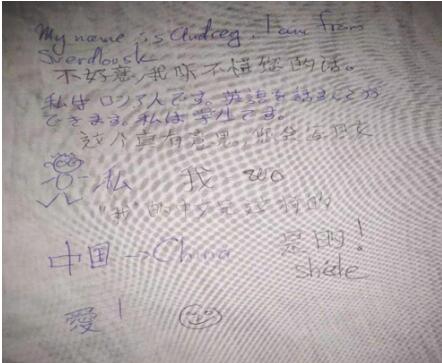 My name is Andreg. I am from
Sverdlovsk
不好意,我听不懂您的话。
私はロシア人です。英語を話すことが
できます。私は学生です。
这个真有意思,
私 我 wo
"我"的中文是这样的
中国→China 是的!
shide
愛!